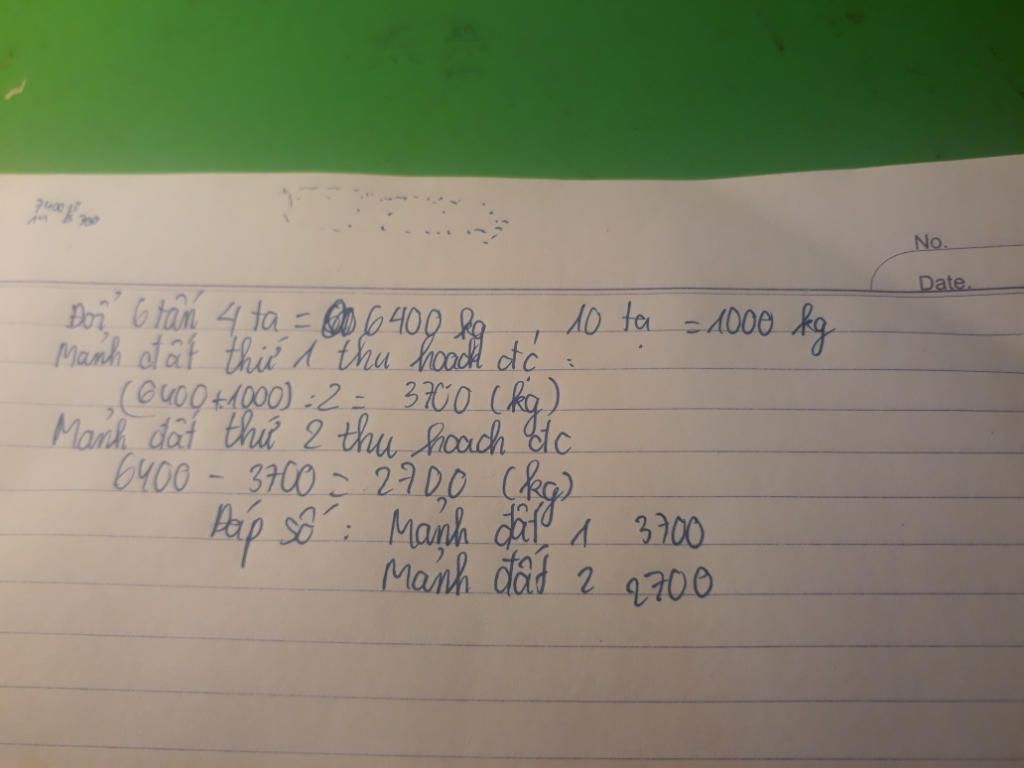 No.
Date.
Đổi 6 tấn 4 tạ = 6400 kg , 10 tạ = 1000 kg
Mảnh đất thứ 1 thu hoạch đc :
(6400+1000) : 2 = 3700 (kg)
Mảnh đất thứ 2 thu hoạch đc
6400 - 3700 = 2700 (kg)
Đáp số : Mảnh đất 1 3700
Mảnh đất 2 2700